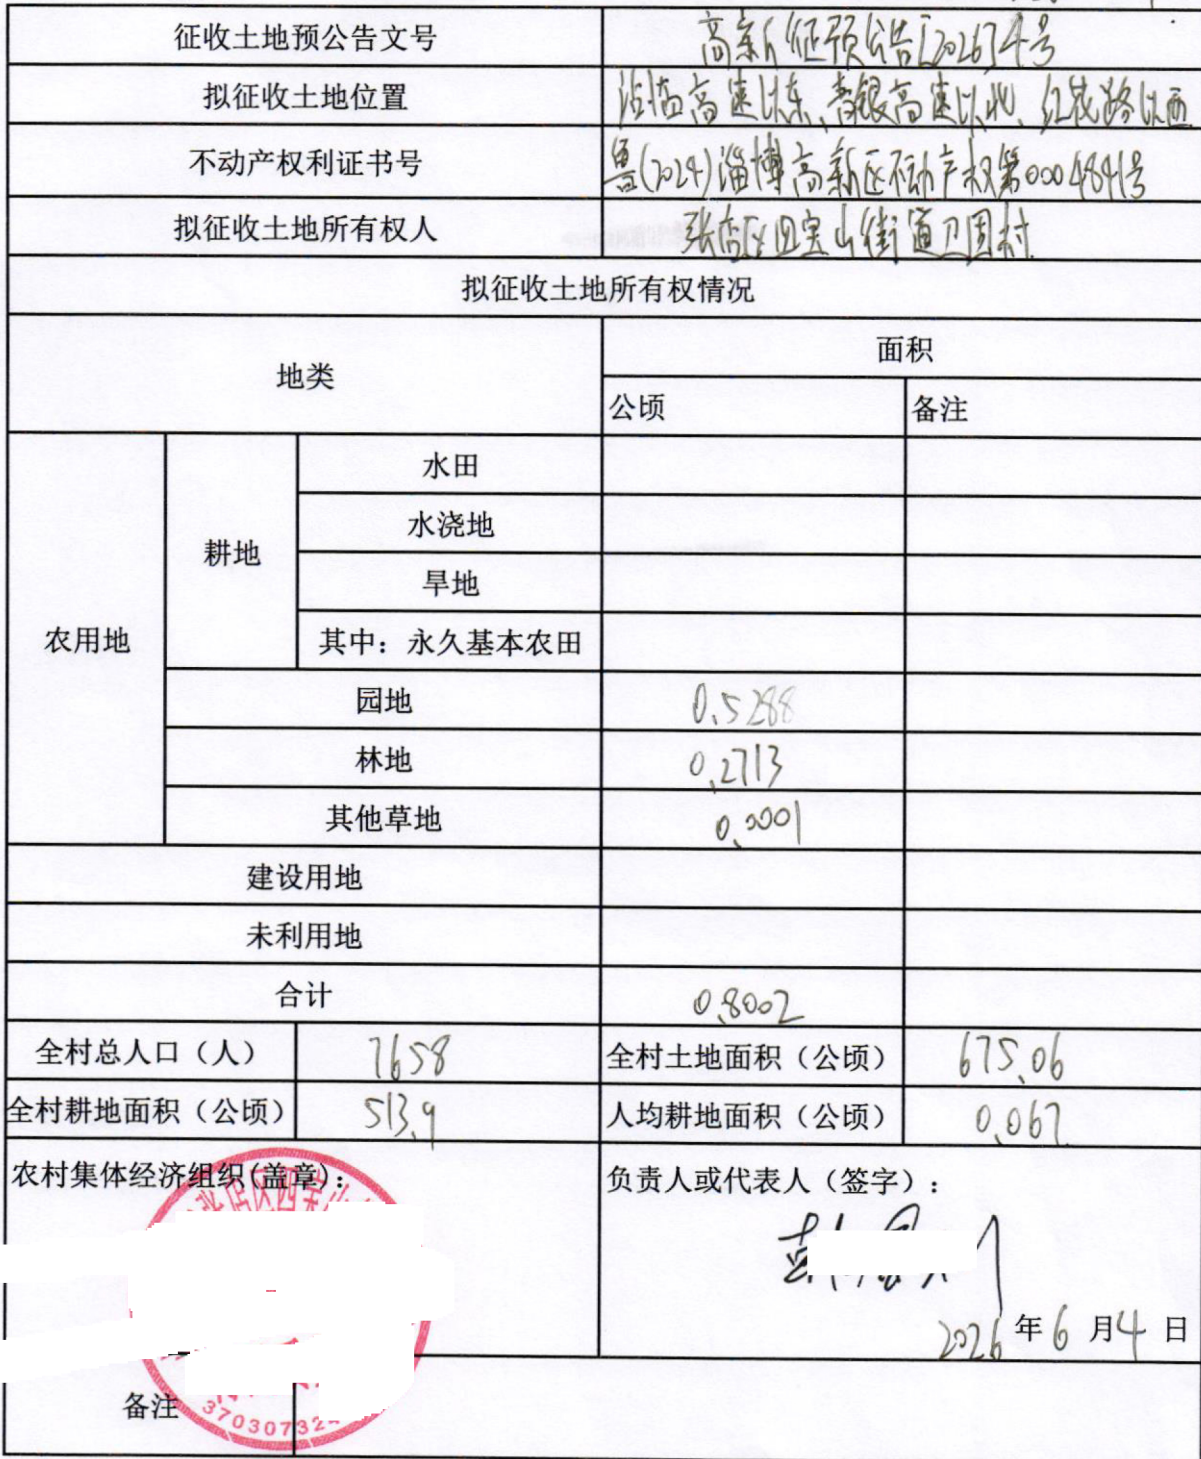 征收土地预公告文号 高新区征预公告[2026]4号
拟征收土地位置 高速以东、青银高速以北、红花路以西
不动产权利证书号 鲁(2024)淄博高新区不动产权第0004841号
拟征收土地所有权人 张店区四宝山街道卫固村
拟征收土地所有权情况
地类 面积
公顷 备注
农用地 耕地 水田
水浇地
旱地
其中：永久基本农田
园地 0.5288
林地 0.2713
其他草地 0.0001
建设用地
未利用地
合计 0.8002
全村总人口（人） 7658 全村土地面积（公顷） 675.06
全村耕地面积（公顷） 513.9 人均耕地面积（公顷） 0.067
农村集体经济组织(盖章)： 负责人或代表人（签字）：
店区四宝山
2026年6月4日
备注
37030732